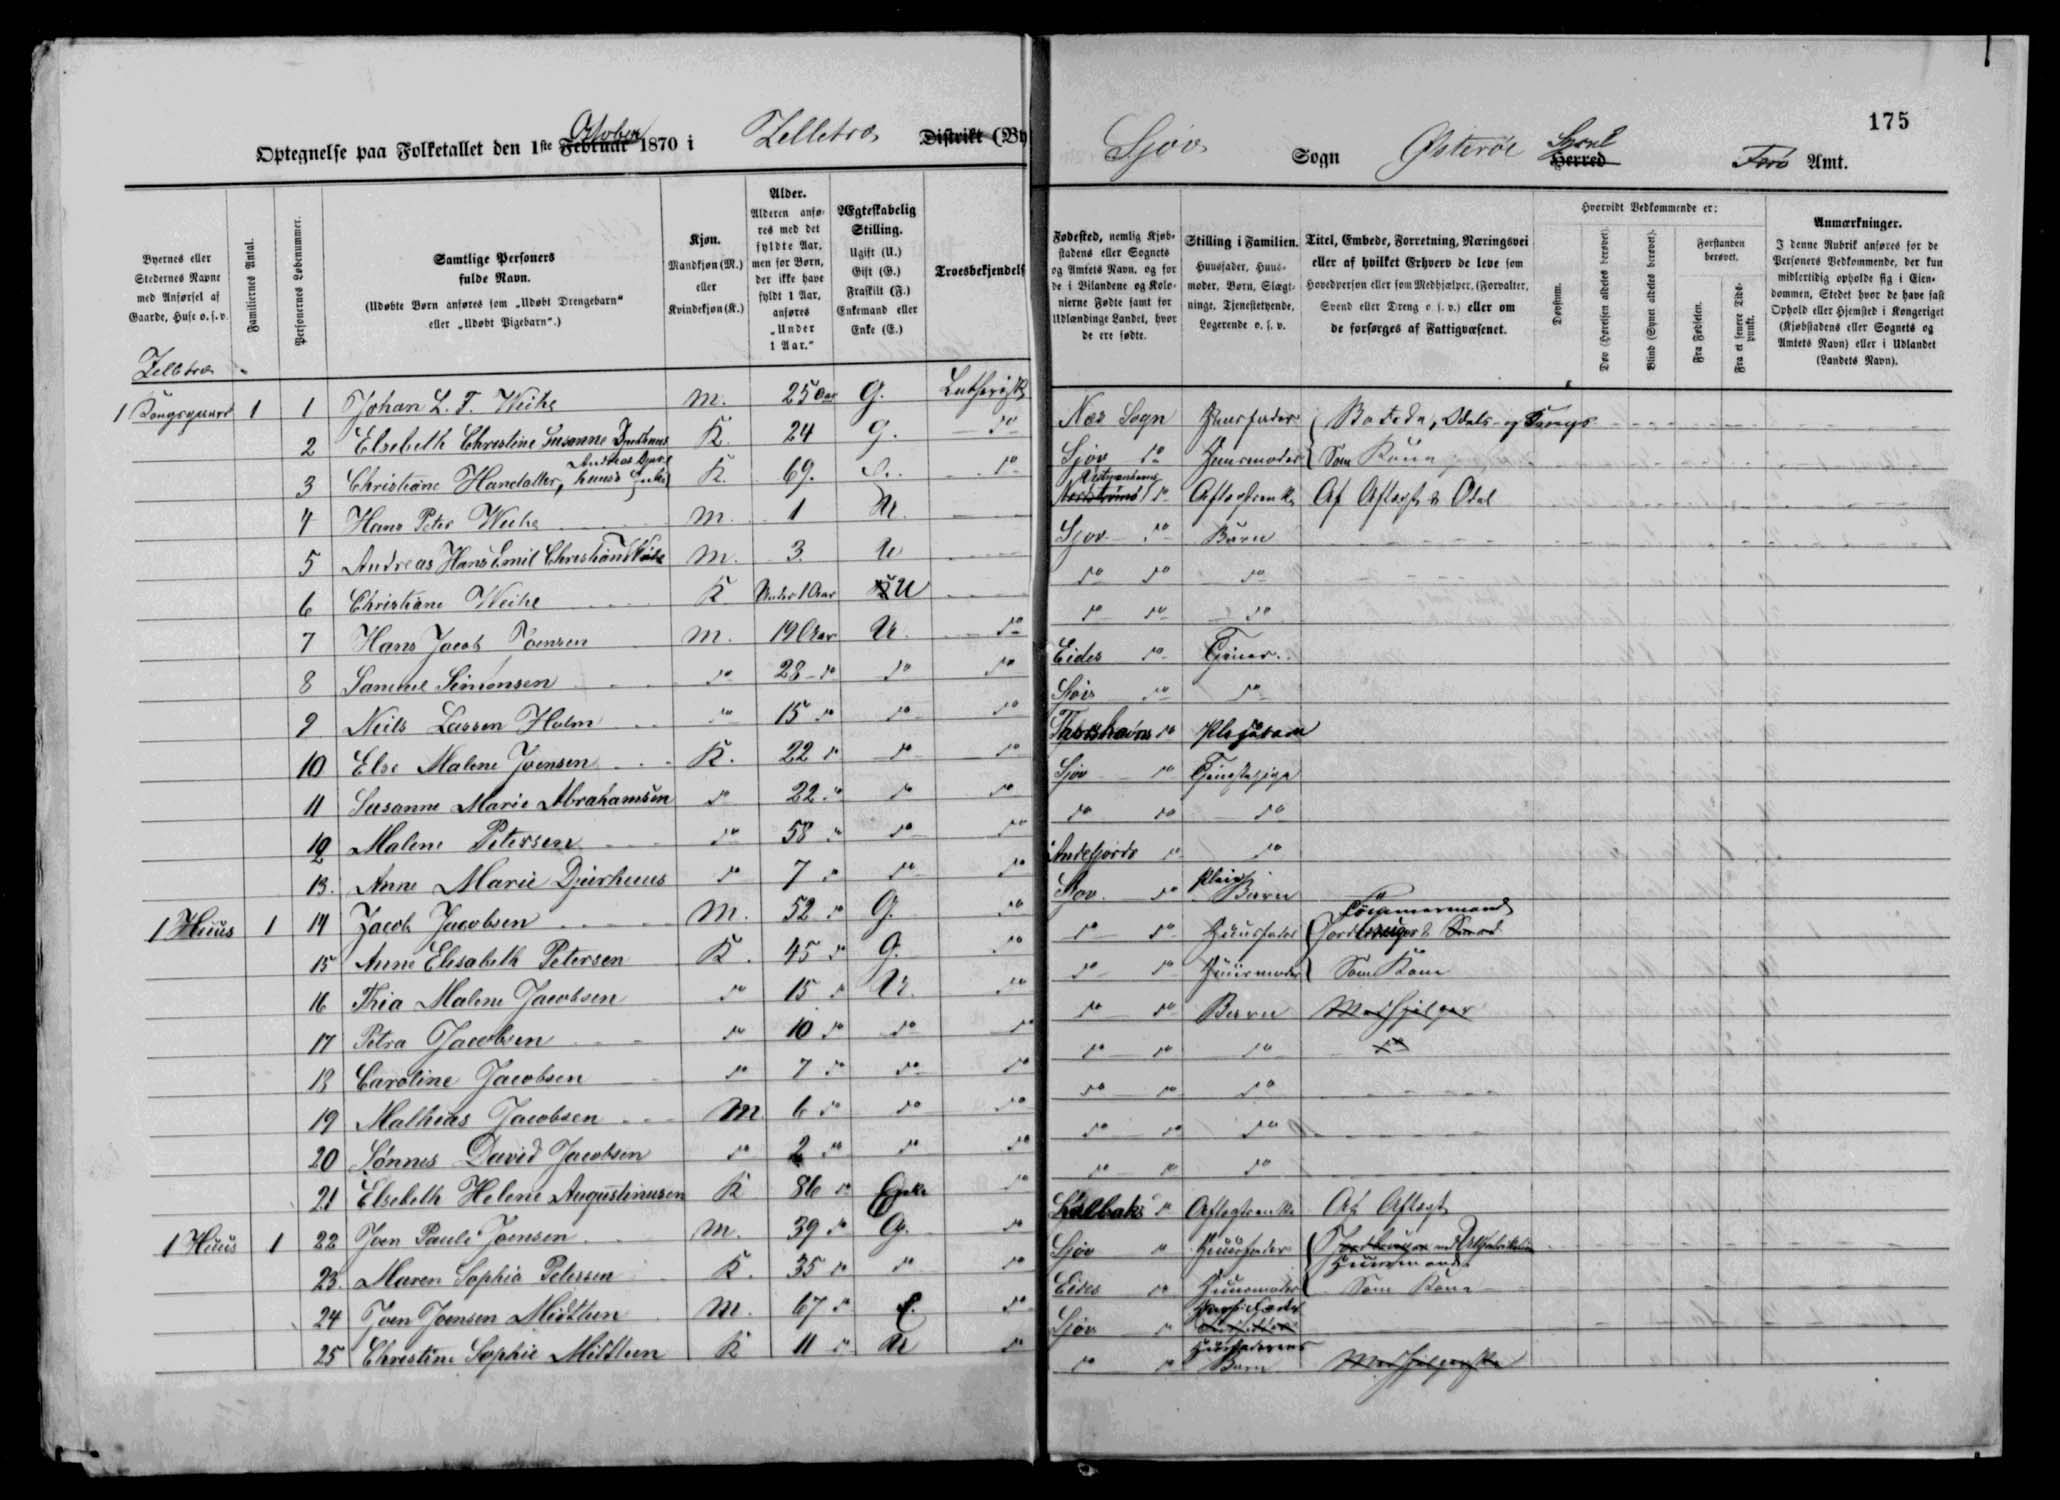 Optegnelse paa Folketallet den 1ste Februar October 1870 i Zelletræ Distrikt (By
Sjøv Sogn Østerøe Herred Syssel Færø Amt.
175
Byernes eller Stedernes Navne med Anførsel af Gaarde, Huse o. s. v.
Familiernes Antal.
Personernes Løbenummer.
Samtlige Personers fulde Navn.
(Udøbte Børn anføres som „Udøbt Drengebarn“ eller „Udøbt Pigebarn“.)
Kjøn. Mandkjøn (M.) eller Kvindekjøn (K.)
Alder. Alderen anføres med det fyldte Aar, men for Børn, der ikke have fyldt 1 Aar, anføres „Under 1 Aar.“
Ægteskabelig Stilling. Ugift (U.) Gift (G.) Fraskilt (F.) Enkemand eller Enke (E.)
Troesbekjendels
Fødested, nemlig Kjøbstadens eller Sognets og Amtets Navn, og for de i Bilandene og Kolonierne Fødte samt for Udlændinge Landet, hvor de ere fødte.
Stilling i Familien. Huusfader, Huusmoder, Børn, Slægtninge, Tjenestetyende, Logerende o. s. v.
Titel, Embede, Forretning, Næringsvei eller af hvilket Erhverv de leve som Hovedperson eller som Medhjælper, (Forvalter, Svend eller Dreng o. s. v.) eller om de forsørges af Fattigvæsenet.
Hvorvidt Vedkommende er:
Døvstum.
Døv (Hørelsen aldeles berøvet).
Blind (Synet aldeles berøvet).
Forstanden berøvet.
Fra Fødselen.
Fra et senere Tidspunkt.
Anmærkninger.
I denne Rubrik anføres for de Personers Vedkommende, der kun midlertidig opholde sig i Eiendommen, Stedet hvor de have fast Ophold eller Hjemsted i Kongeriget (Kjøbstadens eller Sognets og Amtets Navn) eller i Udlandet (Landets Navn).
Zelletræ
1 Kongsgaard 1 1 Johan L. F. Weihe M. 25 Aar G. Luthersk Næs Sogn Huusfader
2 Elsebeth Christine Susanne Djurhuus K. 24 G. do Sjøv do Huusmoder Som Kone
3 Christiane Handatter, Andreas Djurhuus's Enke K. 69. E. do do Aftægtsenke Af Aftægt & Odel
4 Hans Peter Weihe M. 1 U. Sjov do Barn
5 Andreas Hans Emil Christian Weihe M. 3. U do do do
6 Christiane Weihe K Under 1 Aar U do do do
7 Hans Jacob Joensen M. 19 Aar U. do Eides do Tjener
8 Samuel Simonsen do 28 do do do Sjøv do do
9 Neils Lassen Holm do 15 do do do Thorshavns do Pleiebarn
10 Else Malene Joensen K. 22 do do do Sjøv do Tjenestepige
11 Susanne Marie Abrahamsen do 22 do do do do do do
12 Malene Petersen do 58 do do do Andefjords do do
13. Anne Marie Djurhuus do 7 do do do Sjov do Pleie Barn
1 Huus 1 14 Jacob Jacobsen M. 52 do G. do do do Huusfader Jordbruger & Smed Tømmermand
15 Anne Elisabeth Petersen K. 45 do G. do do do Huusmoder Som Kone
16 Thia Malene Jacobsen do 15 do U. do do do Barn Medhjelper
17 Petra Jacobsen do 10 do do do do do do do
18 Caroline Jacobsen do 7 do do do do do do
19 Mathias Jacobsen M. 6 do do do do do do
20 Sønnes David Jacobsen do 2 do do do do do do
21 Elsebeth Helene Augustinusen K 86 do Enke do do Aftægtsenke Af Aftægt
1 Huus 1 22 Joen Pauli Joensen M. 39 do G. do Sjøv do Huusfader Huusmand
23. Maren Sophia Petersen K. 35 do do do Eides do Huusmoder Som Kone
24 Joen Joensen Midttun M. 67 do E. do Sjøv do
25 Christine Sophie Midttun K 11 do U do do do Huusfaderens Barn